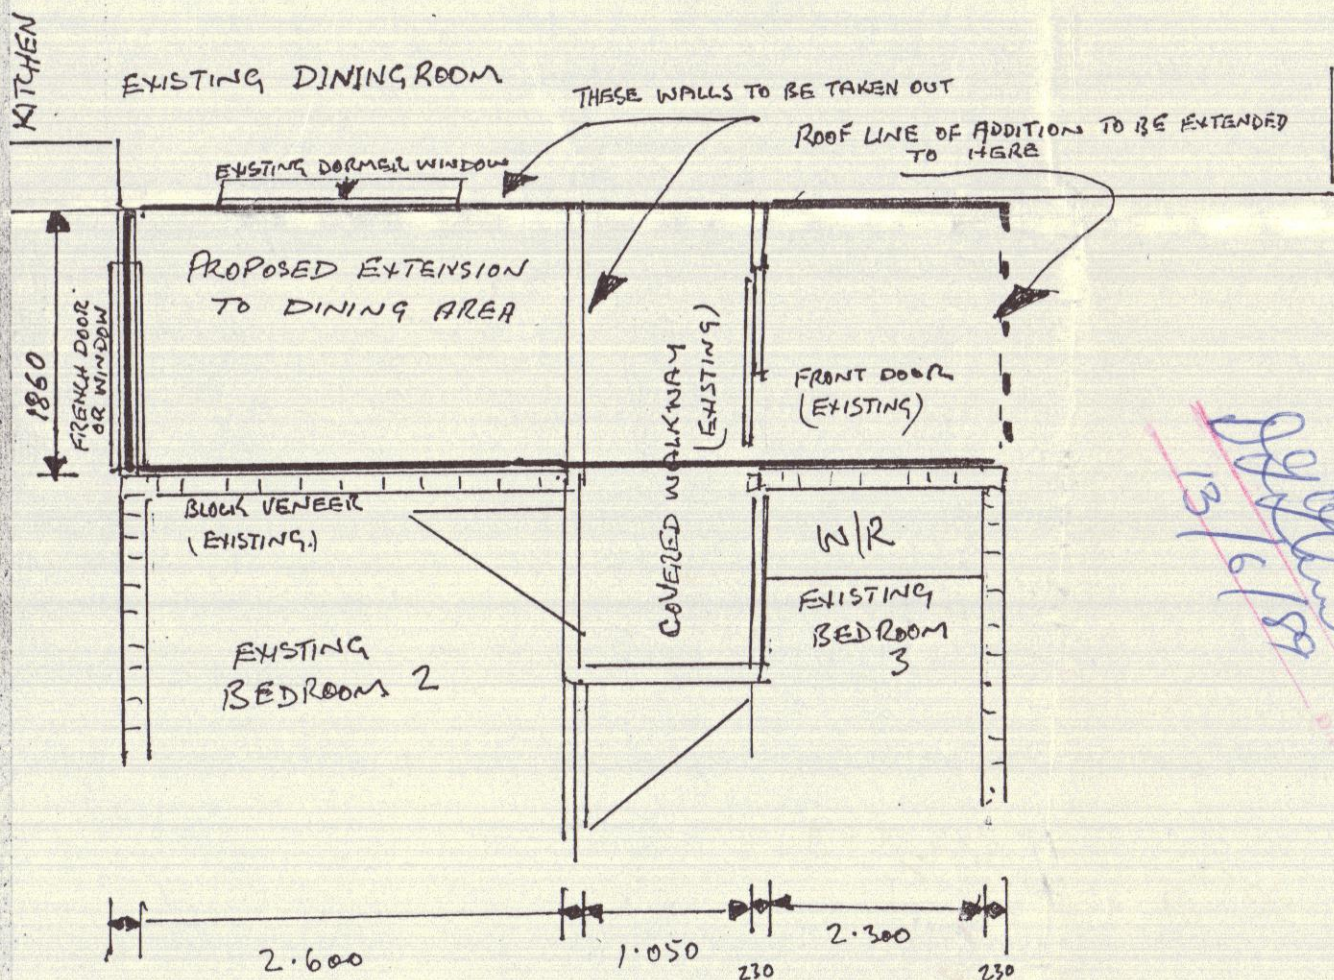 KITCHEN
EXISTING DININGROOM
THESE WALLS TO BE TAKEN OUT
ROOF LINE OF ADDITION TO BE EXTENDED
TO HERE
EXISTING DORMER WINDOW
PROPOSED EXTENSION
TO DINING AREA
1860
FRENCH DOOR
OR WINDOW
COVERED WALKWAY
(EXISTING)
FRONT DOOR
(EXISTING)
BLOCK VENEER
(EXISTING.)
W/R
EXISTING
BEDROOM
3
EXISTING
BEDROOM 2
13/6/89
2.600
1.050
230
2.300
230